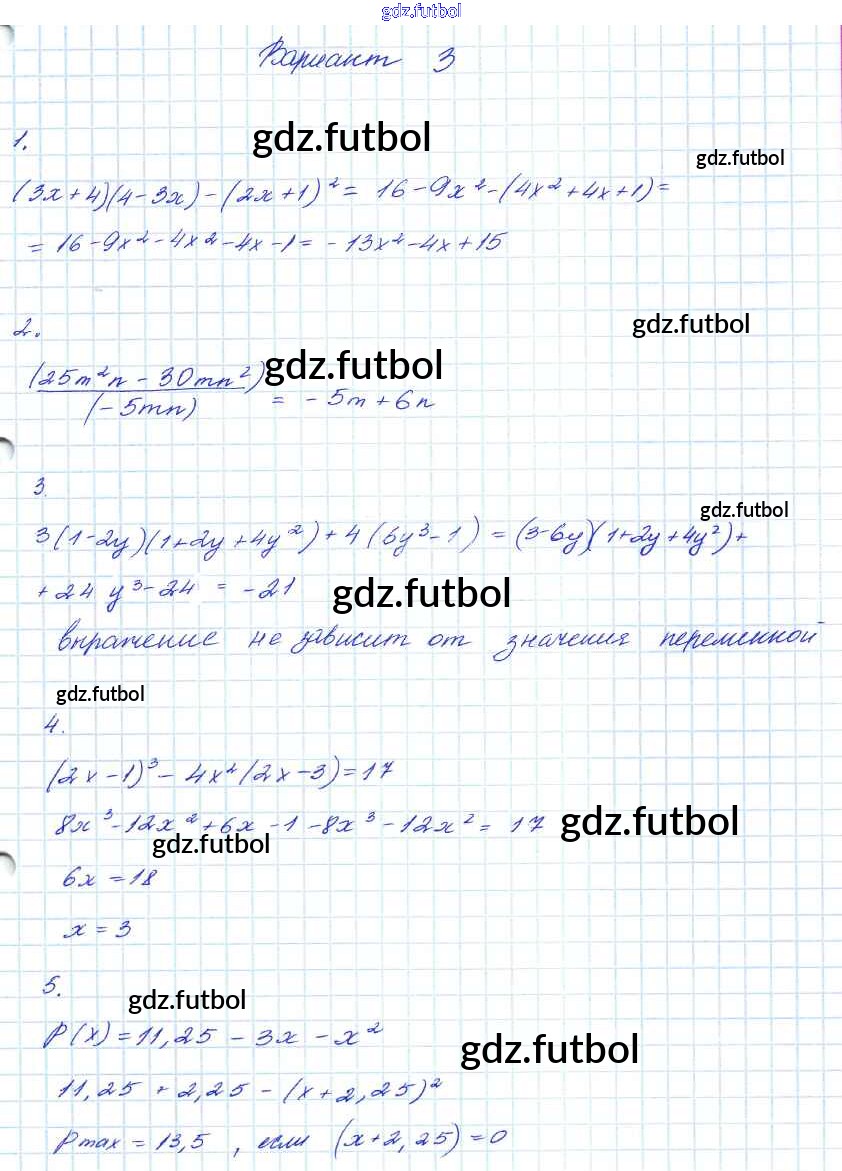 gdz.futbol
Вариант 3
1.
gdz.futbol
gdz.futbol
(3x+4)(4-3x)-(2x+1)²= 16-9x²-(4x²+4x+1)=
=16-9x²-4x²-4x-1= -13x²-4x+15
2.
gdz.futbol
(25m²n - 30mn²) gdz.futbol
(-5mn) = -5m+6n
3.
gdz.futbol
3(1-2y)(1+2y+4y²)+4(6y³-1) = (3-6y)(1+2y+4y²)+
+24 y³-24 = -21 gdz.futbol
выражение не зависит от значения переменной
gdz.futbol
4.
(2x-1)³- 4x²(2x-3)=17
8x³-12x²+6x-1-8x³-12x²= 17 gdz.futbol
gdz.futbol
6x =18
x = 3
5.
gdz.futbol
P(x)=11,25 - 3x - x²
gdz.futbol
11,25 + 2,25 - (x+2,25)²
Pmax = 13,5 , если (x+2,25)=0